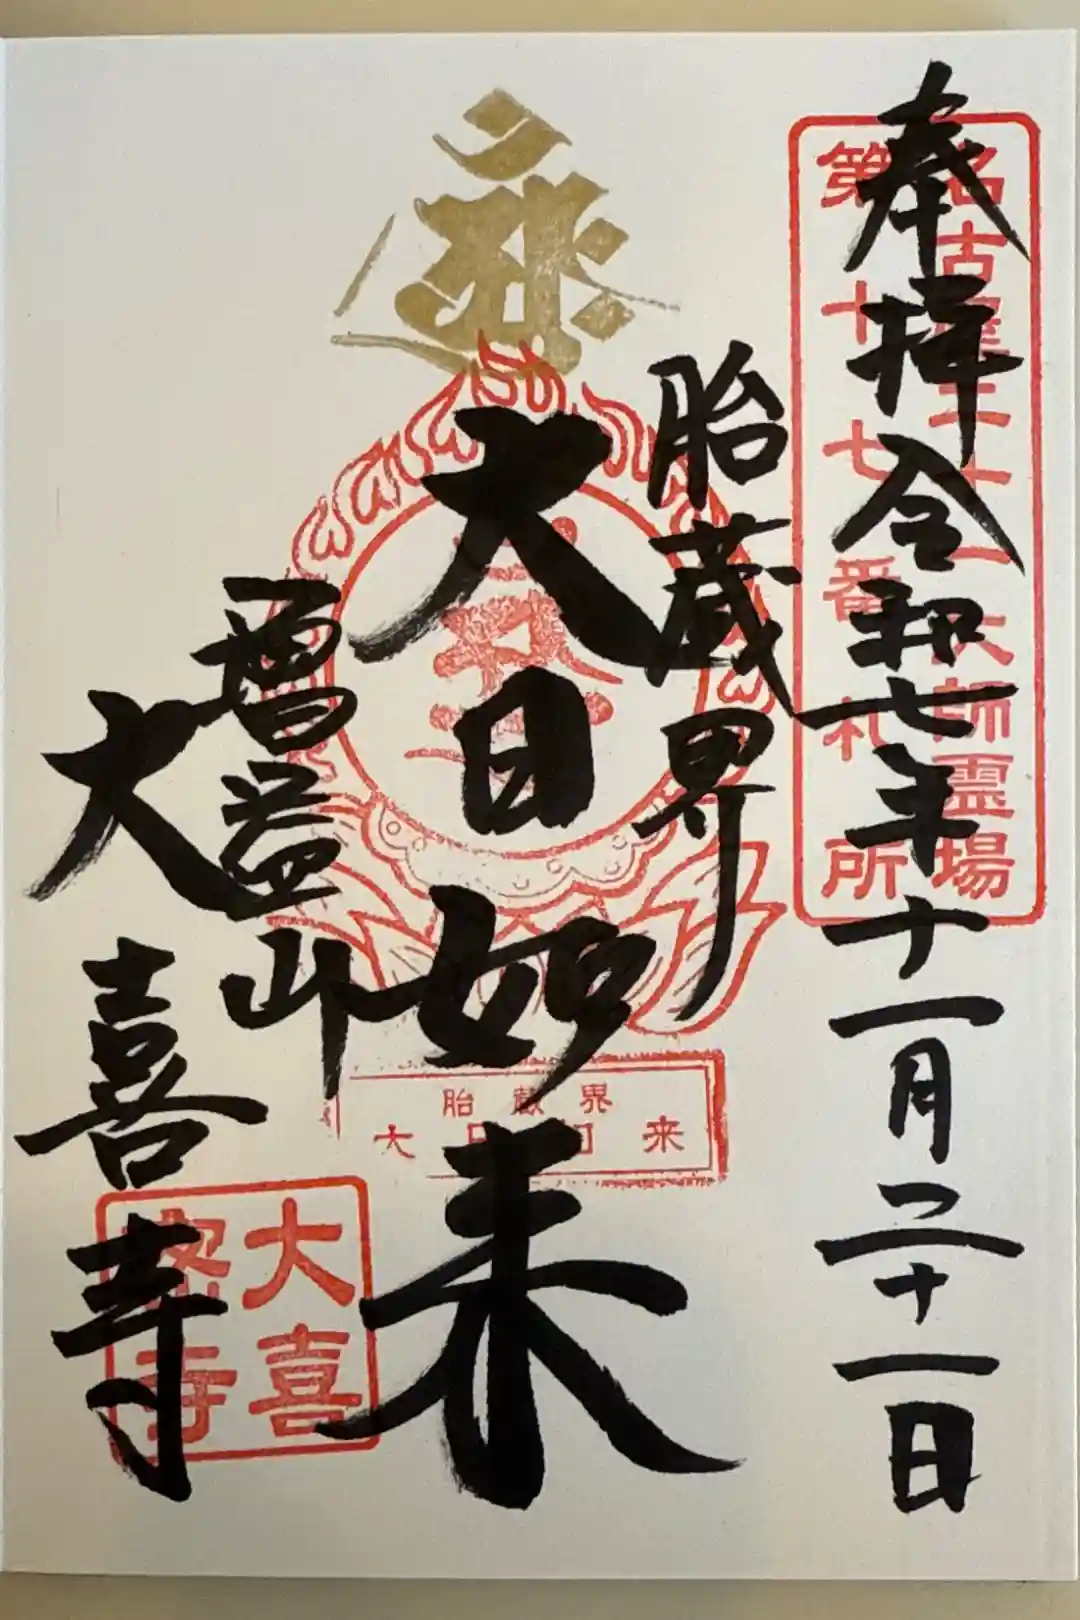 奉拝 令和七年十一月二十一日
名古屋二十一大師霊場
第十七番札所
胎蔵界
大日如来
胎蔵界
大日如来
増益山
大喜寺
大喜
密寺